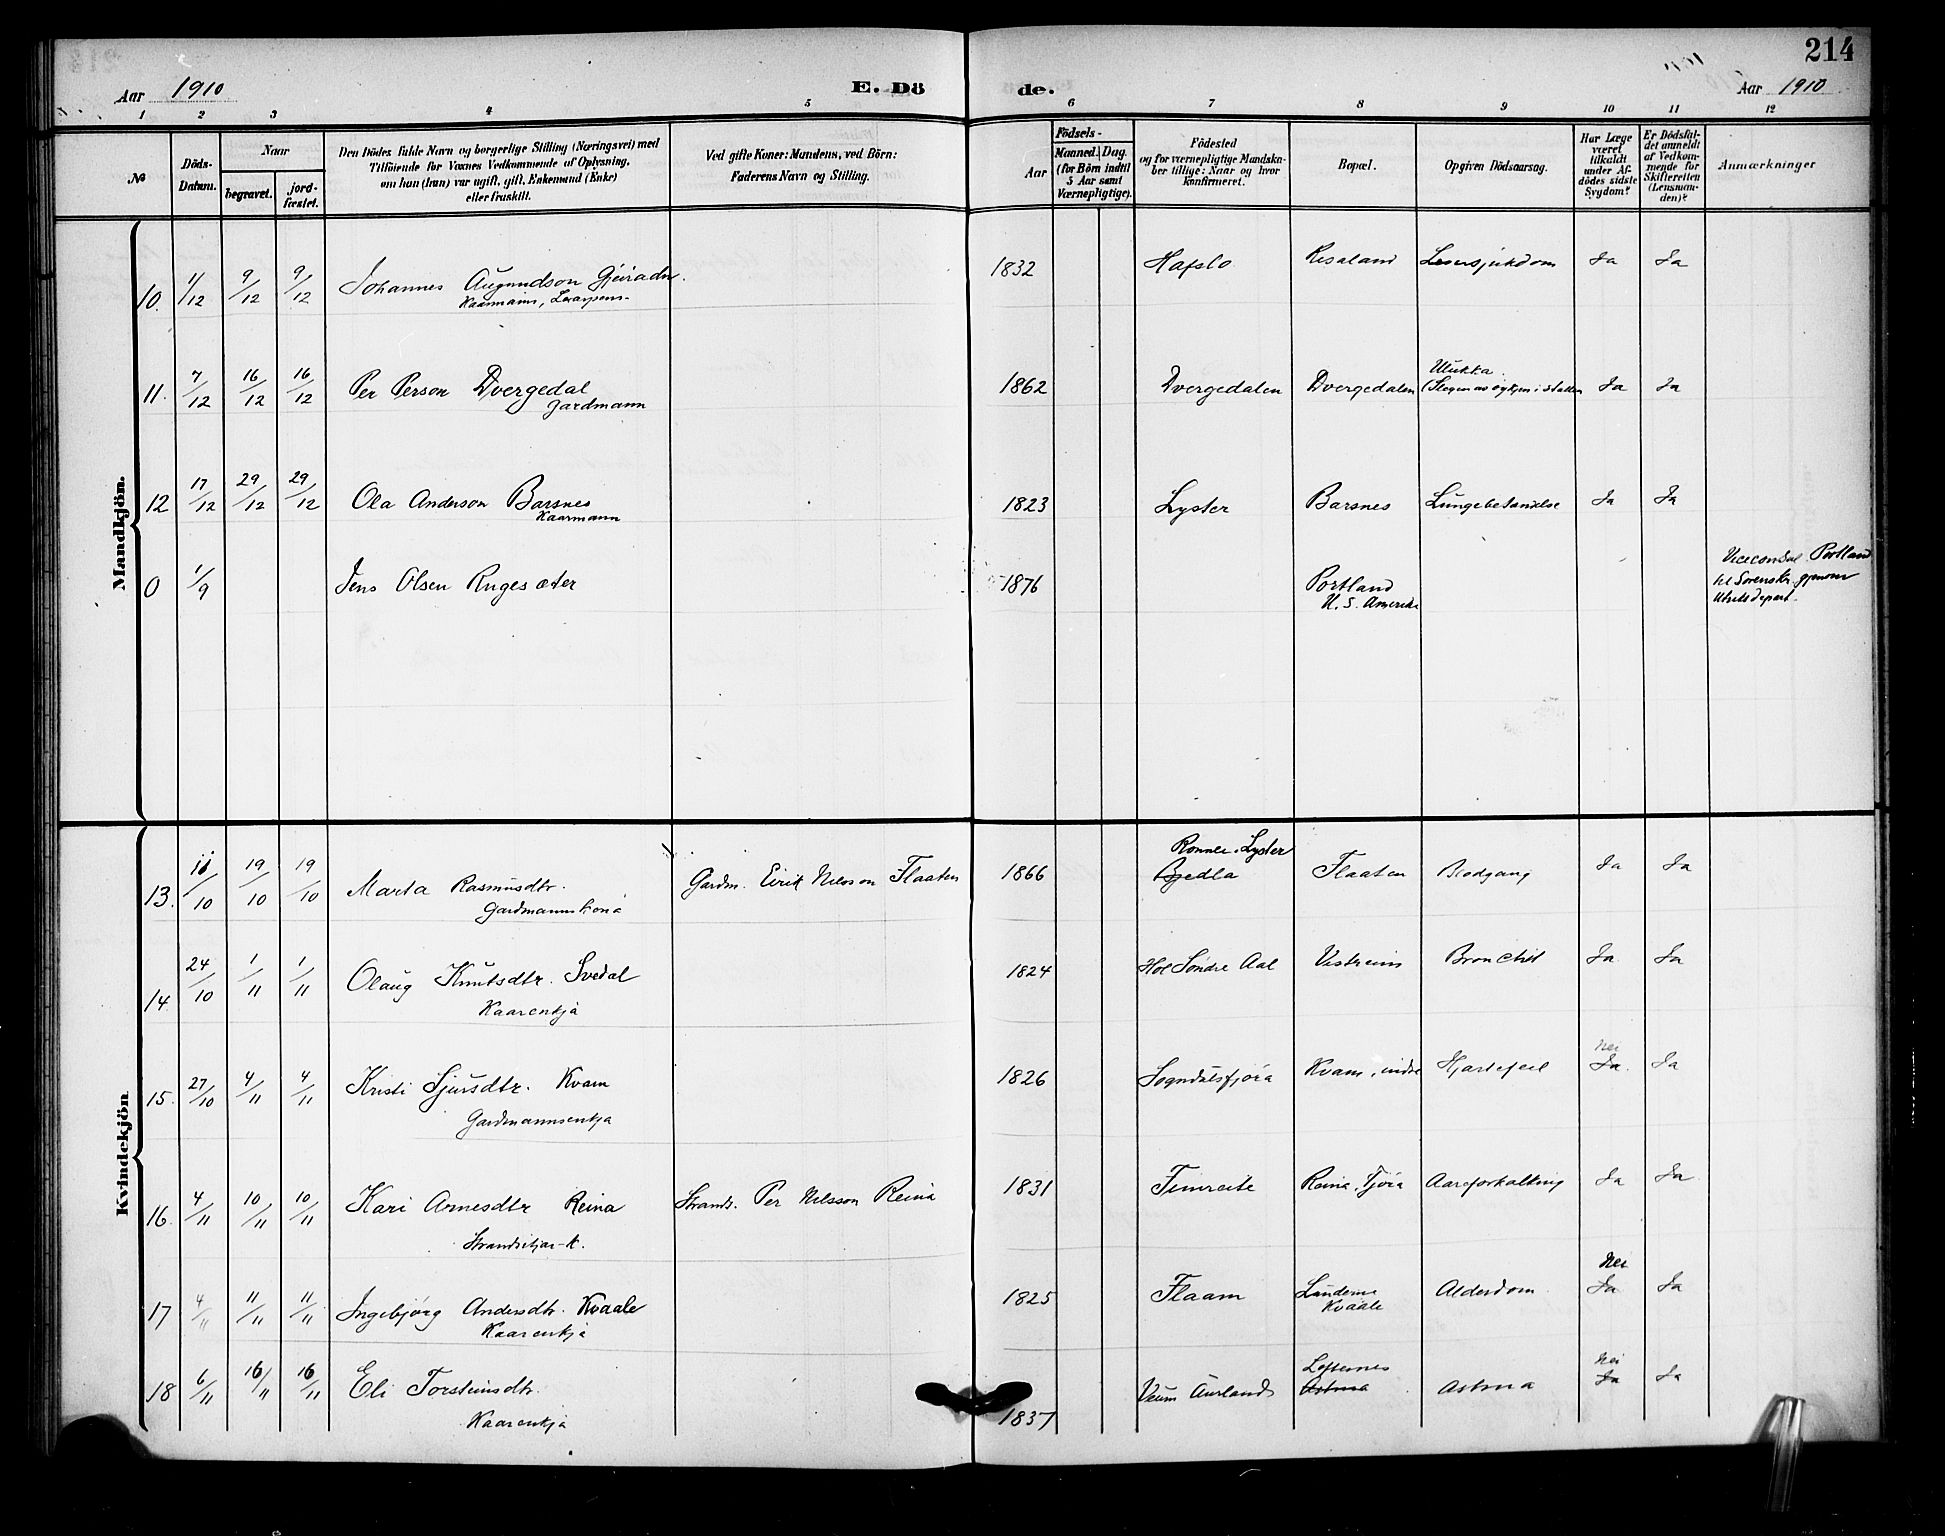 214
Aar 1910 E. Dö de. Aar 1910
1 2 3 4 5 6 7 8 9 10 11 12
No
Döds-Datum.
Naar
begravet.
jordfæstet.
Den Dödes fulde Navn og borgerlige Stilling (Næringsvei) med
Tilföiende for Voxnes Vedkommende af Oplysning,
om hun (han) var ugift, gift, Enkemand (Enke)
eller fraskilt.
Ved gifte Koner: Mandens, ved Börn:
Faderens Navn og Stilling.
Födsels-
Aar
Maaned. Dag.
(for Börn indtil
5 Aar samt
Værnepligtige).
Födested
og for værnepligtige Mandska-
ber tillige: Naar og hvor
konfirmeret.
Bopæl.
Opgiven Dödsaarsag.
Har Læge
været
tilkaldt
under Af-
dödes sidste
Sygdom?
Er Dödsfal-
det anmeldt
af Vedkom-
mende for
Skifteretten
(Lensman-
den)?
Anmærkninger
Mandkjön.
10. 1/12 9/12 9/12 Johannes Augundson 1832 Hafslo Risaland Ja Ja
Kaarmann,
11. 7/12 16/12 16/12 Per Person Dvergedal 1862 Dvergedalen Dvergedalen Ulukka. Ja Ja
Gardmann
12 17/12 29/12 29/12 Ola Anderson Barsnes 1823 Lyster Barsnes Lungebetændelse Ja Ja
Kaarmann
0 1/9 Jens Olsen Rugesæter 1876 Portland
U. S. Amerika
Viceconsul Portland
til Sorenskr. gjenom
Utriksdepart.
Kvindekjön
13. 11/10 19/10 19/10 Marta Rasmusdtr. Gardm. Eirik Nilsson Flaaten 1866 Ronnei, Lyster Flaaten Blodgang Ja Ja
Gardmannskona
14 24/10 1/11 1/11 Olaug Knutsdtr. Svedal 1824 Hol Söndre Aal Vestreim Bronchit Ja Ja
Kaarenkja
15. 27/10 4/11 4/11 Kristi Sjursdtr. Kvam 1826 Sogndalsfjöra Kvam, indre Hjartefeil Nei Ja. Ja
Gardmannsenkja
16. 4/11 10/11 10/11 Kari Arnesdtr Reina Strands. Per Nilsson Reina 1831 Fimreite Reina, Fjöra Aareforkalkning Ja Ja
Strandsitjar-k.
17 4/11 11/11 11/11 Ingebjörg Andersdtr. Kvaale 1825 Flaam Kvaale Alderdom Nei Ja Ja
Kaarenkja
18 6/11 16/11 16/11 Eli Torsteinsdtr. 1837 Veum Aurland Loftesnes Astma Astma Nei Ja Ja
Kaarenkja